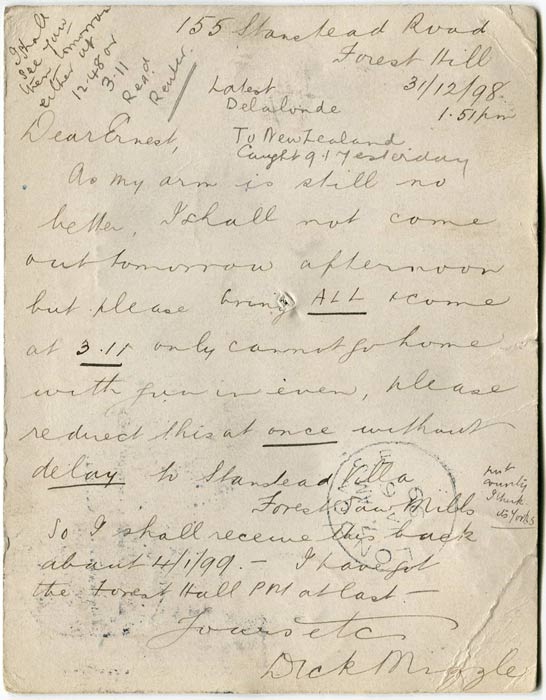 I shall
see you
then tomorrow
either at
12.48 or
3.11
Read
Reuter.
155 Stanstead Road
Forest Hill
31/12/98.
1.51pm
Latest
Delalonde
To New Zealand
Caught 9.1 Yesterday
Dear Ernest,
As my arm is still no
better, I shall not come
out tomorrow afternoon
but please bring ALL & come
at 3.11 only cannot go home
with you in even, please
redirect this at once without
delay to Stanstead Villa
Forest Saw Mills
put
county
I think
its Yorks
So I shall receive this back
about 4/1/99. – I have got
the Forest Hall PM at last –
Yours etc
Dick